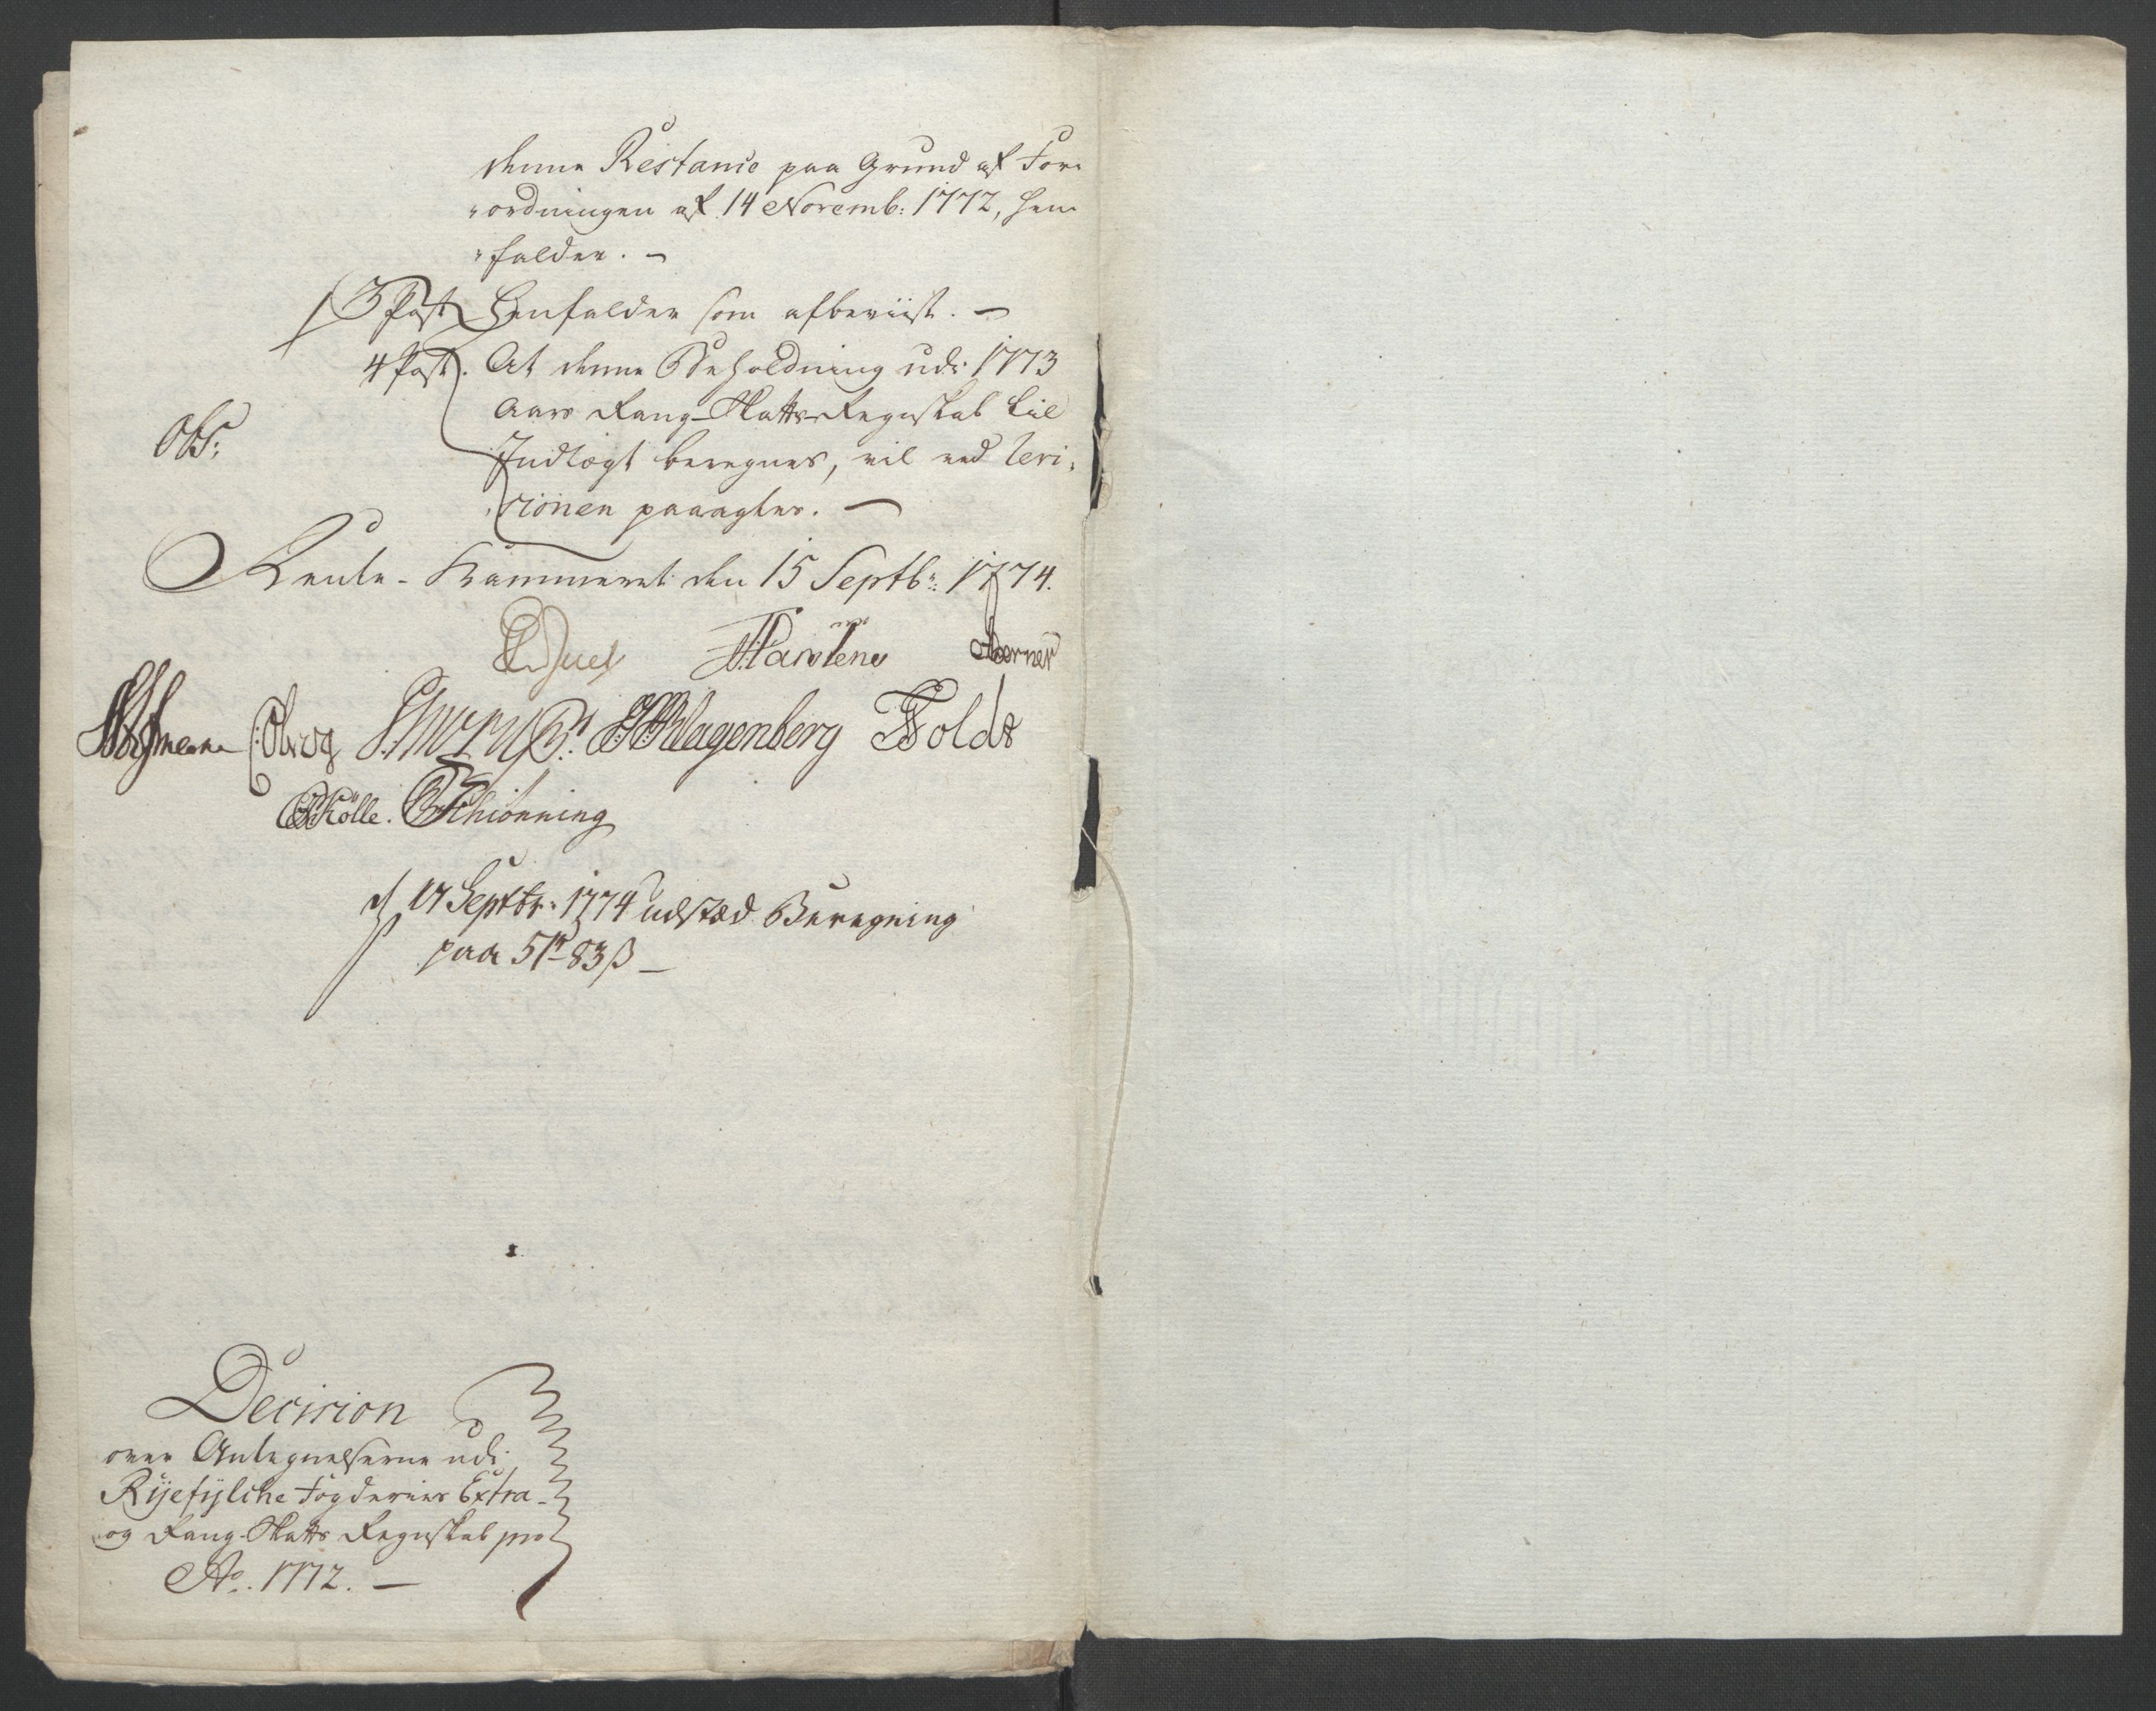 denne Restance paa Grund af For-
ordningen af 14 Novemb: 1772, hen-
falder. –
3 Post Henfalder som afbeviist. –
4 Post. At denne Beholdning udi 1773
Aars Rang-Skatts-Regnskab til
Obs: Indtægt beregnes, vil ved Revi-
sionen paaagtes. –
Rente-Kammeret den 15 Septbr: 1774.
Juel
Hofmann JH Klagenberg Foldt
Kölle. Schiönning
d 17 Septbr: 1774 udstæd Beregning
paa 5 r 83 ß –
Decision
over Antegnelserne udi
Ryefylche Fogderies Extra-
og Rang-Skatts Regnskab pro
Ao. 1772. –